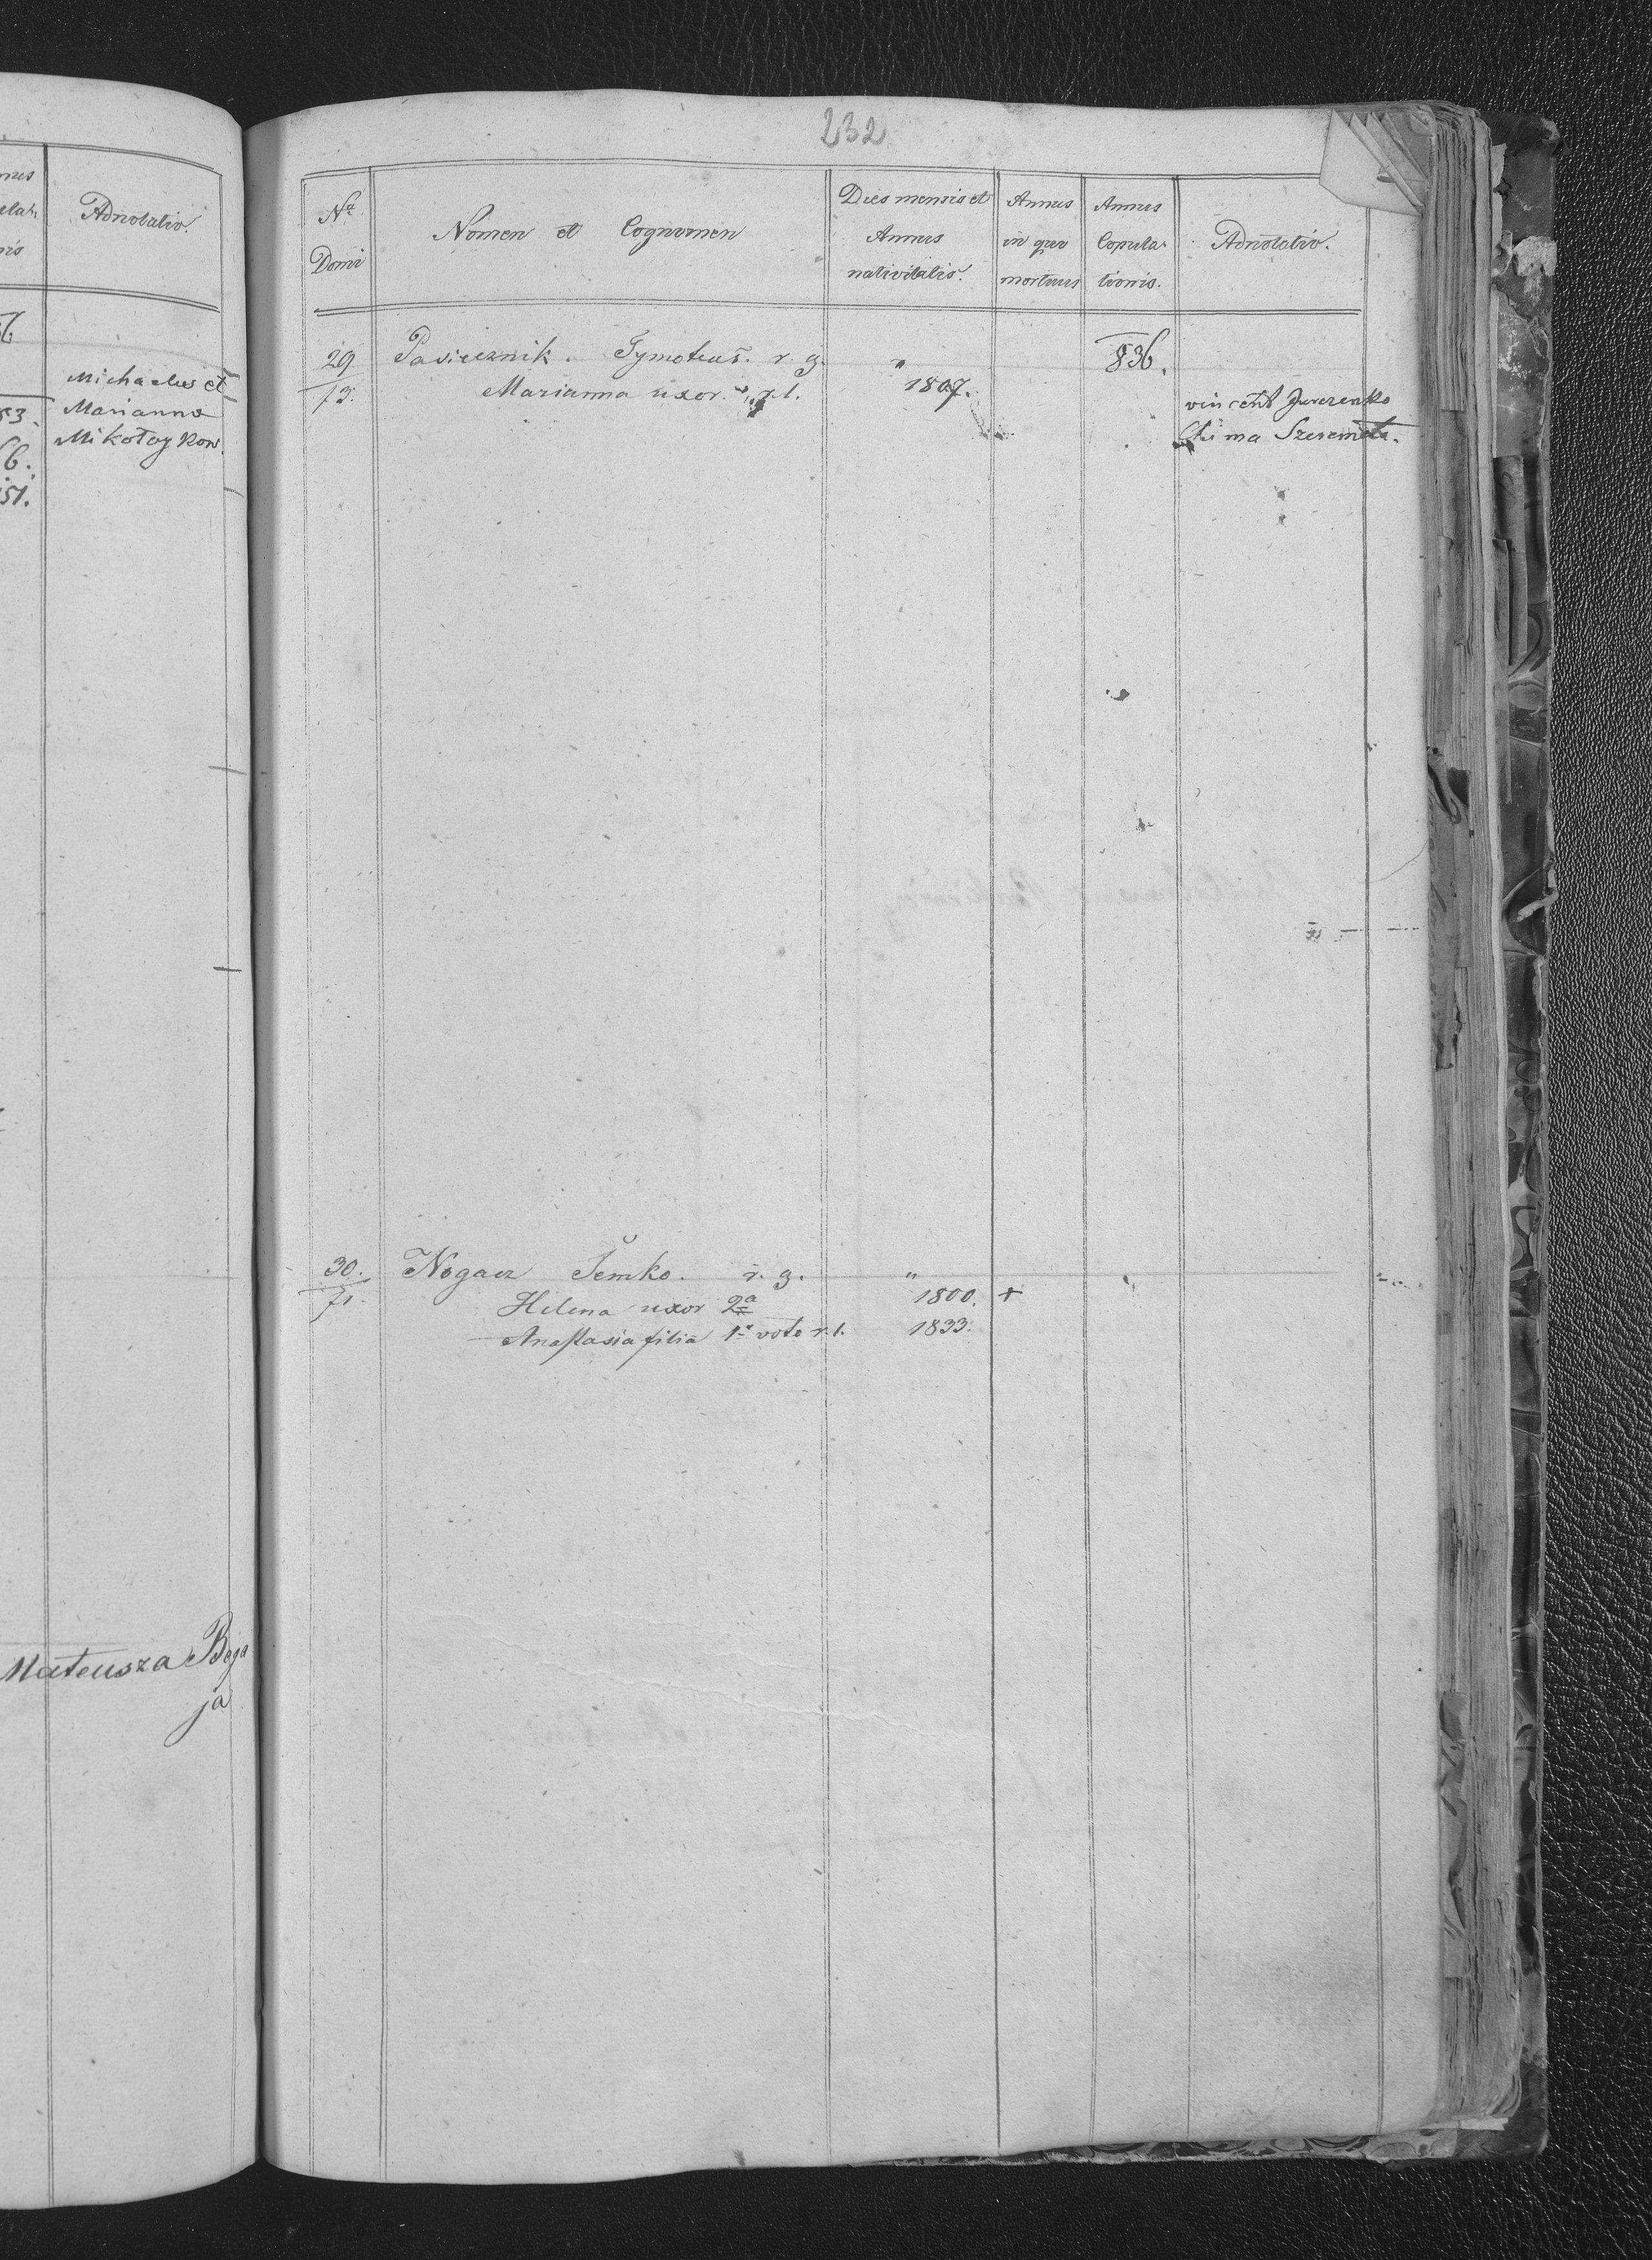 Adnotatio.
Michaelus et
Marianna
Mikołay Kow.
53.
51.
Mateusza Boga
ja
232
No
Domi
Nomen et Cognomen
Dies mensis et
Annus
nativitatis.
Annus
in quo
mortuus
Annus
Copula-
tionis.
Adnotatio.
29 Pasiecznik. Tymoteus. r. g. " 836.
73. Marianna uxor. r. l. 1807.
vincent Jurczenko
Chima Szeremeta.
30. Nogacz Semko. r. g. "
71. Helena uxor 2a 1800. +
Anastasia filia 1o voto r. l. 1833.